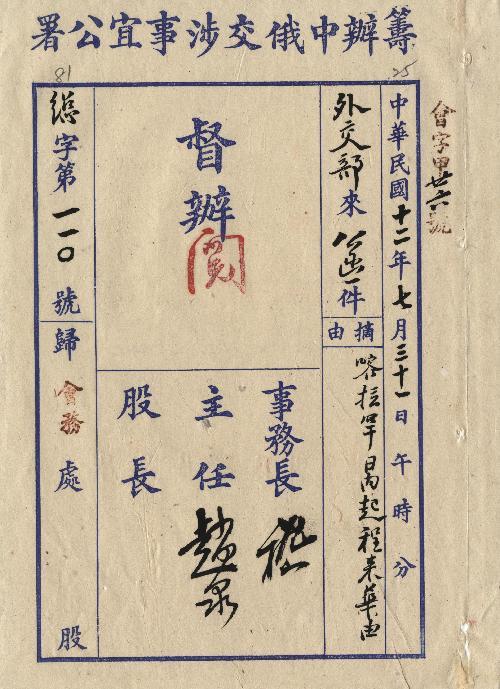 籌辦中俄交涉事宜公署
會字甲廿六號
25
中華民國十二年七月三十一日午時分
外交部來公函一件
摘由
喀拉罕日內起程來華由
督辦
閱
事務長
主任 趙泉
股長
81
總字第一一〇號歸會務處股